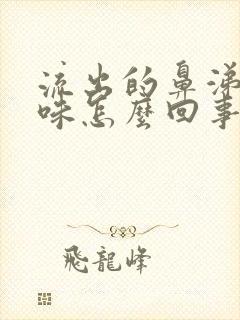 流出的鼻涕
味怎麼回事
飛龍峰